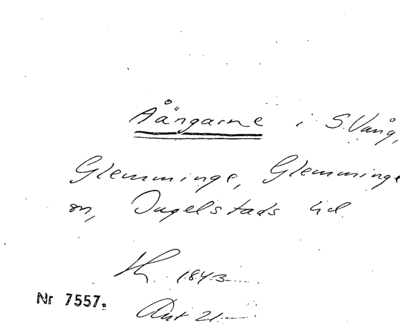 Aängarne i S. Vång,
Glemminge, Glemminge
sn, Ingelstads hd.
Kl. 1843
Nr 7557.
Ant 21